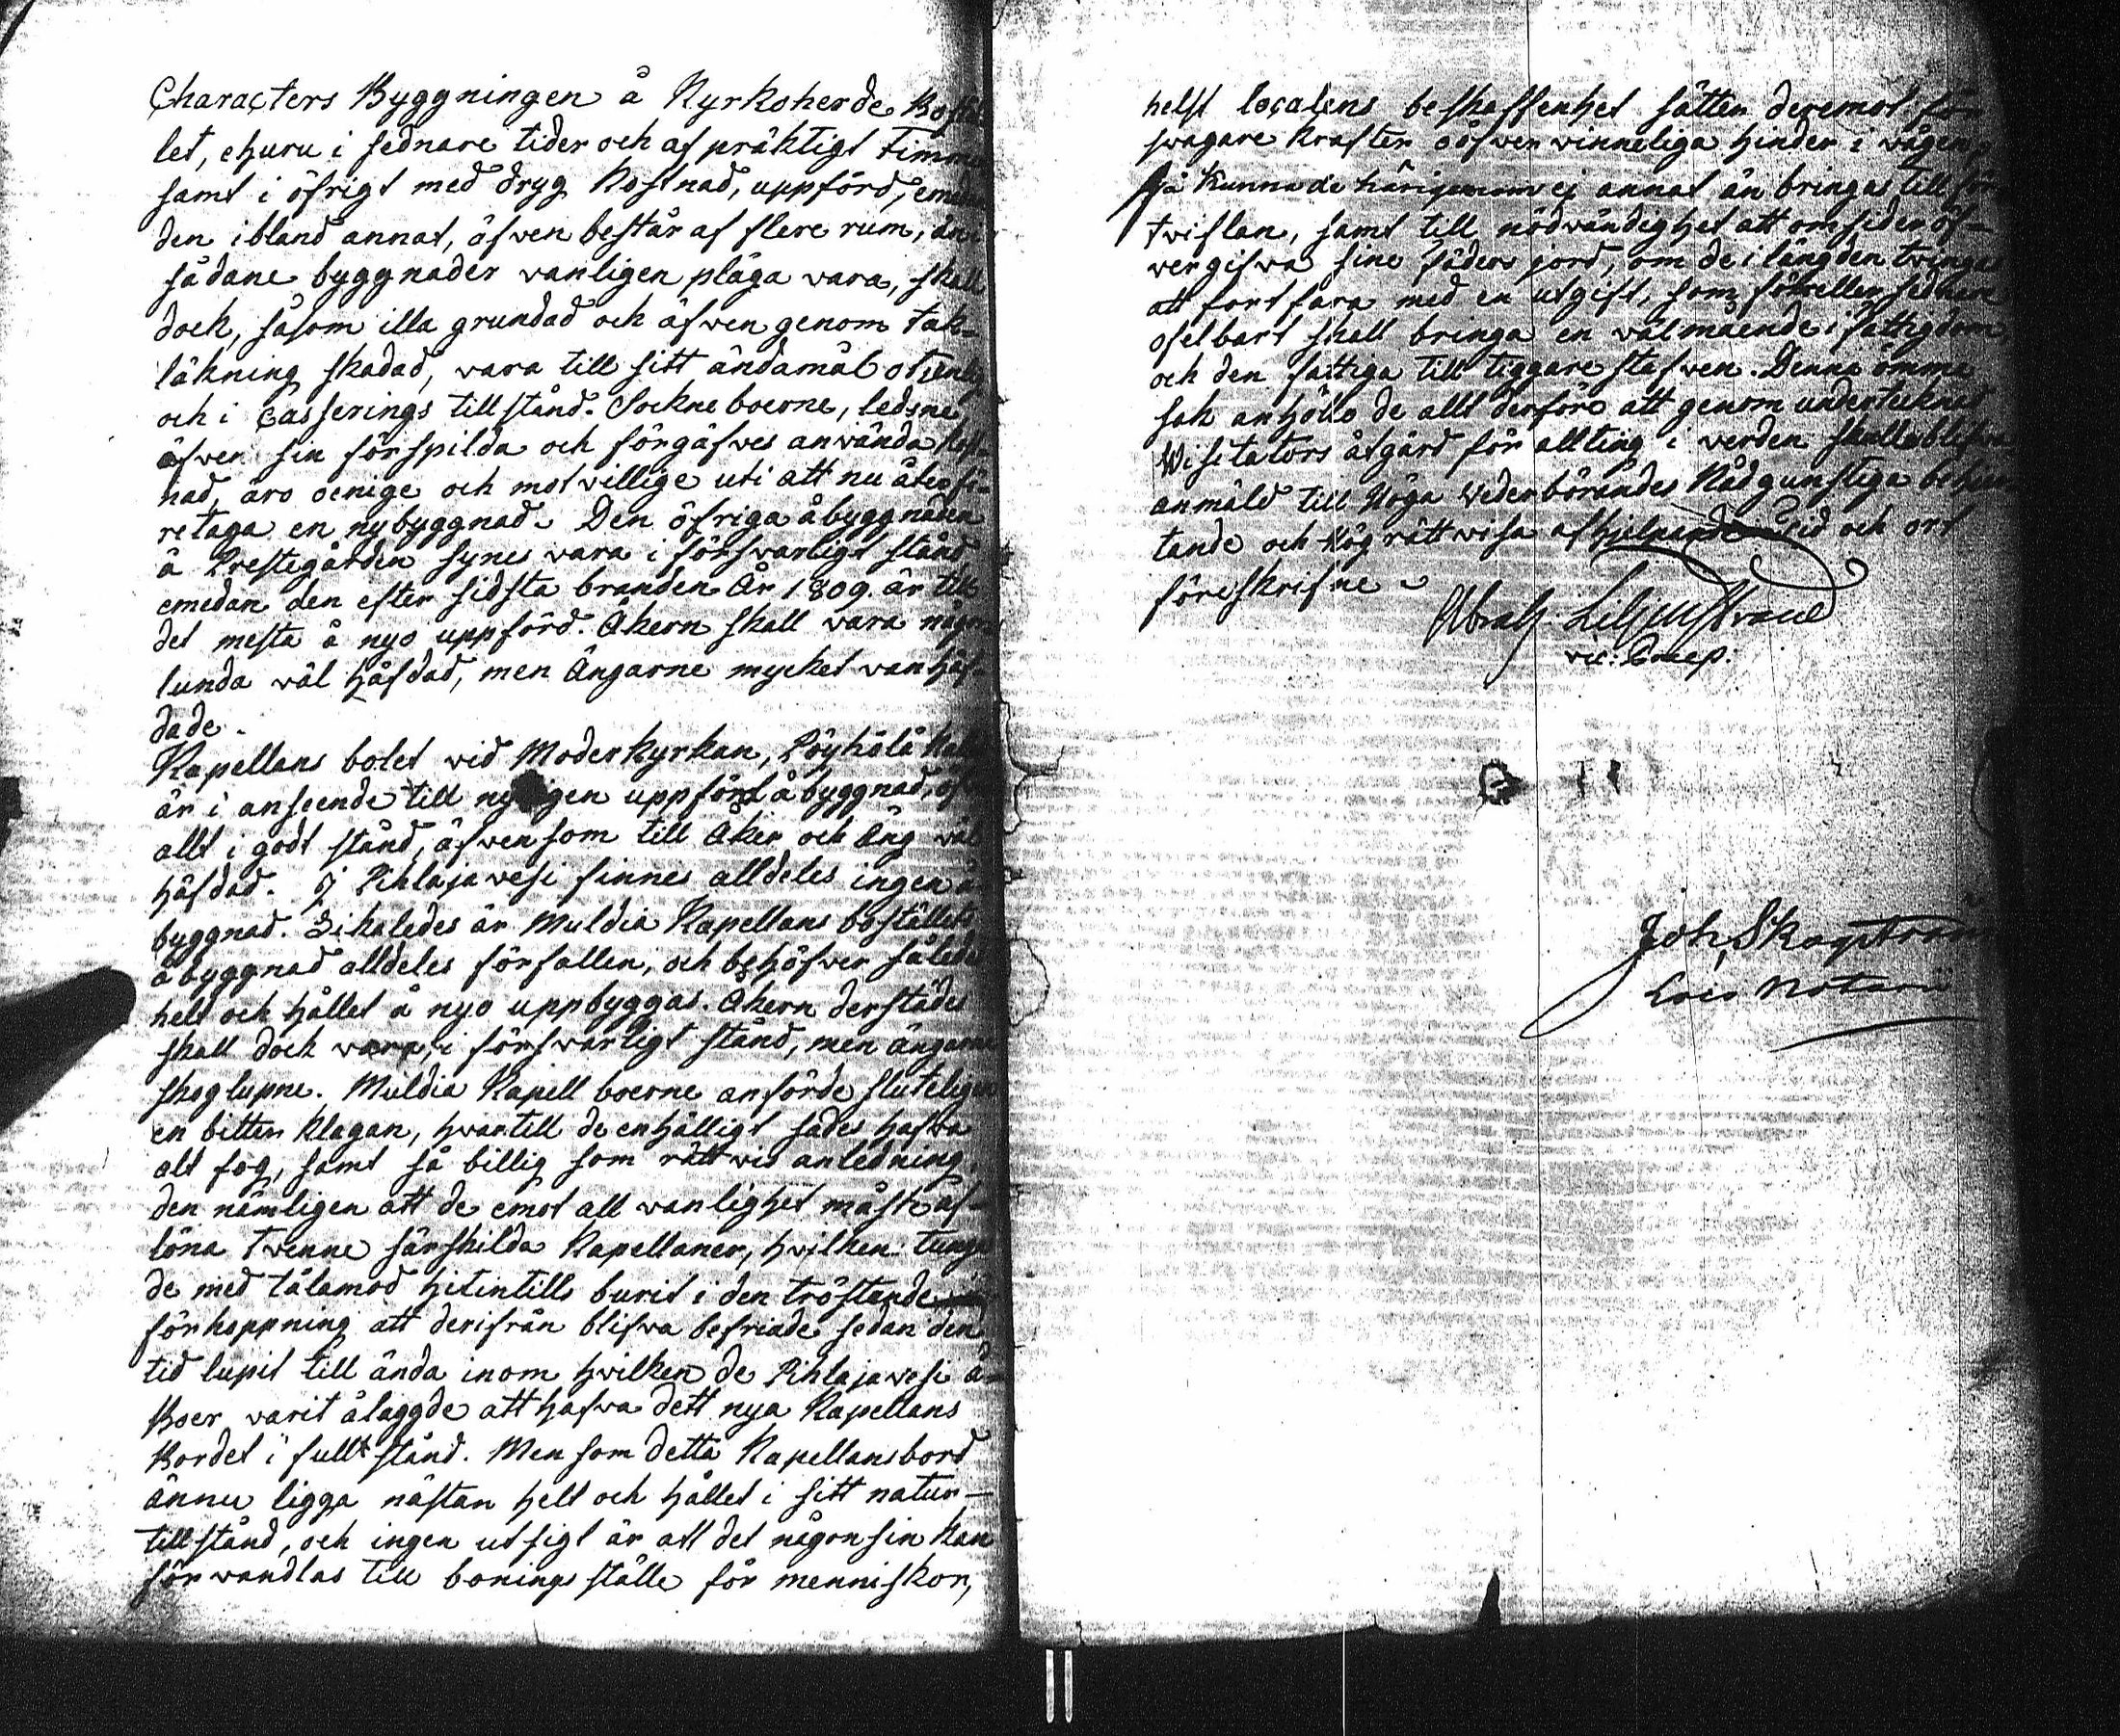 Characters Byggningen å Kyrkoherde Bostäl-
let, ehuru i sednare tider och af präktigt Timmer
samt i öfrigt med dryg Kostnad, uppförd, emedan
den ibland annat, äfven består af flere rum, än
sådane byggnader vanligen pläga vara, skall
dock, såsom illa grundad och äfven genom tak-
läkning skadad, vara till sitt ändamål otjenlig
och i Casserings tillstånd. Sockneboerne, ledsne
äfwen sin förspilda och förgäfves använda kost-
nad, äro oenige och motvillige uti att nu återfö-
retaga en nybyggnad. Den öfriga åbyggnaden
å Prestegården synes vara i försvarligt stånd
emedan den efter sidsta branden År 1809. är till
det mesta å nyo uppförd. Åkern skall vara någor-
lunda väl häfdad, men Ängarne mycket vanhäf-
dade.
Kapellans bolet vid Moderkyrkan, Löyhölä
är i anseende till nyligen uppförd åbyggnad,
allt i godt stånd, äfvensom till Åker och Äng väl
häfdad. I Pihlajavesi finnes alldeles ingen å-
byggnad. Likaledes är Muldia Kapellans boställets
åbyggnad alldeles förfallen, och behöfver således
helt och hållet å nyo uppbyggas. Åkern derstädes
skall dock vara, i försvarligt stånd, men ängarne
skoglupne. Muldia Kapell boerne anförde sluteligen
en bitter klagan, hvartill de enhälligt sades hafva
alt fog, samt så billig som rättvis anledning.
den nemligen att de emot all vanlighet måste af-
löna tvenne särskilda Kapellaner, hvilken tunga
de med tålamod hitintills burit i den tröstande
förhoppning att derifrån blifva befriade sedan den
tid lupit till ända inom hvilken de Pihlajavesi å-
Boer varit ålaggde att hafva dett nya Kapellans
Bordet i fullt stånd. Men som detta Kapellansbord
ännu ligga nästan helt och hållet i sitt natur-
tillstånd, och ingen utsigt är att det någonsin kan
förvandlas till bonings ställe för menniskor,
helst localens beskaffenhet sätter deremot för
svagare Krafter oöfvervinneliga hinder i vägen,
så kunna de härigenom ej annat än bringas till för-
tviflan, samt till nödvändighet att omsider öf-
vergifva sine fäders jord, om de i längden tvingas
att fortfara med en utgift, som
ofelbart skall bringa en välmående i fattigdom,
och den fattiga till tiggare stafven. Denna ömma
sak anhöllo de allt derföre att genom undertecknad
Visitators åtgärd för allting i verden skulle blifva
anmäld till Höga Vederbörandes Nådgunstiga
tande och Hög rättvisa afhjelpande Tid och ort
föreskrifne
Abrah Liljenstrand
vic: Praep:
Joh, Skogström
Loco Notarii